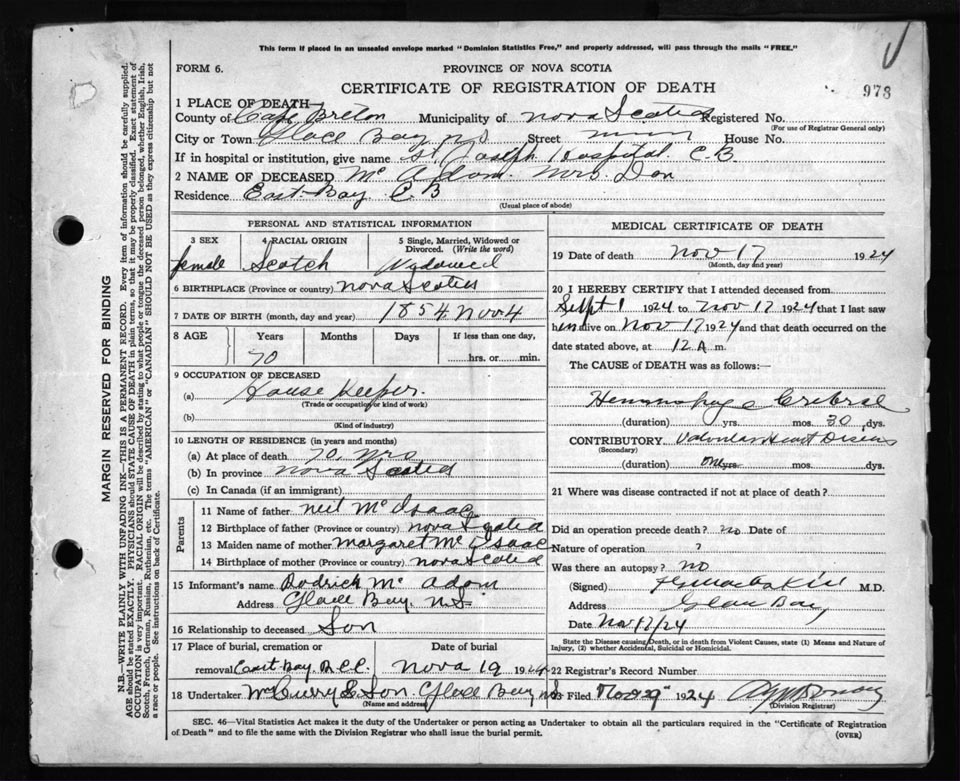 This form if placed in an unsealed envelope marked "Dominion Statistics Free," and properly addressed, will pass through the mails "FREE."
FORM 6.
PROVINCE OF NOVA SCOTIA
CERTIFICATE OF REGISTRATION OF DEATH
973
1 PLACE OF DEATH
County of Cape Breton Municipality of Nova Scotia Registered No.
(For use of Registrar General only)
City or Town Glace Bay NS Street House No.
If in hospital or institution, give name St. Joseph Hospital. C.B
2 NAME OF DECEASED Mc Adam. Mrs. Dan
Residence East Bay C B
(Usual place of abode)
PERSONAL AND STATISTICAL INFORMATION
3 SEX
female
4 RACIAL ORIGIN
Scotch
5 Single, Married, Widowed or Divorced. (Write the word)
Wydowed
6 BIRTHPLACE (Province or country) Nova Scotia
7 DATE OF BIRTH (month, day and year) 1854 Nov 4
8 AGE Years Months Days If less than one day,
70 hrs. or min.
9 OCCUPATION OF DECEASED
(a) House Keeper.
(Trade or occupation or kind of work)
(b)
(Kind of industry)
10 LENGTH OF RESIDENCE (in years and months)
(a) At place of death 70, yrs
(b) In province Nova Scotia
(c) In Canada (if an immigrant)
Parents
11 Name of father Neil Mc Isaac
12 Birthplace of father (Province or country) Nova Scotia
13 Maiden name of mother Margaret Mc Isaac
14 Birthplace of mother (Province or country) Nova Scotia
15 Informant's name Rodrick Mc Adam
Address Glace Bay. N.S.
16 Relationship to deceased Son
17 Place of burial, cremation or removal East Bay
Date of burial
Nova 19 1924
18 Undertaker McCurry & Son Glace Bay NS
(Name and address)
MEDICAL CERTIFICATE OF DEATH
19 Date of death Nov 17 1924
(Month, day and year)
20 I HEREBY CERTIFY that I attended deceased from
Sept 1 1924 to Nov 17 1924 that I last saw
h alive on Nov 17 1924 and that death occurred on the
date stated above, at 12 A m.
The CAUSE of DEATH was as follows:—
Cerebral
(duration) yrs. mos. 30 dys.
CONTRIBUTORY Heart Disease
(Secondary)
(duration) yrs. mos. dys.
21 Where was disease contracted if not at place of death?
Did an operation precede death? no Date of
Nature of operation ?
Was there an autopsy? no
(Signed) M.D.
Address Glace Bay
Date Nov 18/24
State the Disease causing Death, or in death from Violent Causes, state (1) Means and Nature of Injury, (2) whether Accidental, Suicidal or Homicidal.
22 Registrar's Record Number
Filed 1924
(Division Registrar)
SEC. 46—Vital Statistics Act makes it the duty of the Undertaker or person acting as Undertaker to obtain all the particulars required in the "Certificate of Registration
of Death" and to file the same with the Division Registrar who shall issue the burial permit.
(OVER)
MARGIN RESERVED FOR BINDING
N.B.—WRITE PLAINLY WITH UNFADING INK—THIS IS A PERMANENT RECORD. Every item of information should be carefully supplied.
AGE should be stated EXACTLY. PHYSICIANS should STATE CAUSE OF DEATH in plain terms, so that it may be properly classified. Exact statement of
OCCUPATION is very important. RACIAL ORIGIN will be described by stating to what people or tongue the deceased person belonged, whether English, Irish,
Scotch, French, German, Russian, Ruthenian, etc. The terms "AMERICAN" or "CANADIAN" SHOULD NOT BE USED as they express citizenship but not
a race or people. See instructions on back of Certificate.